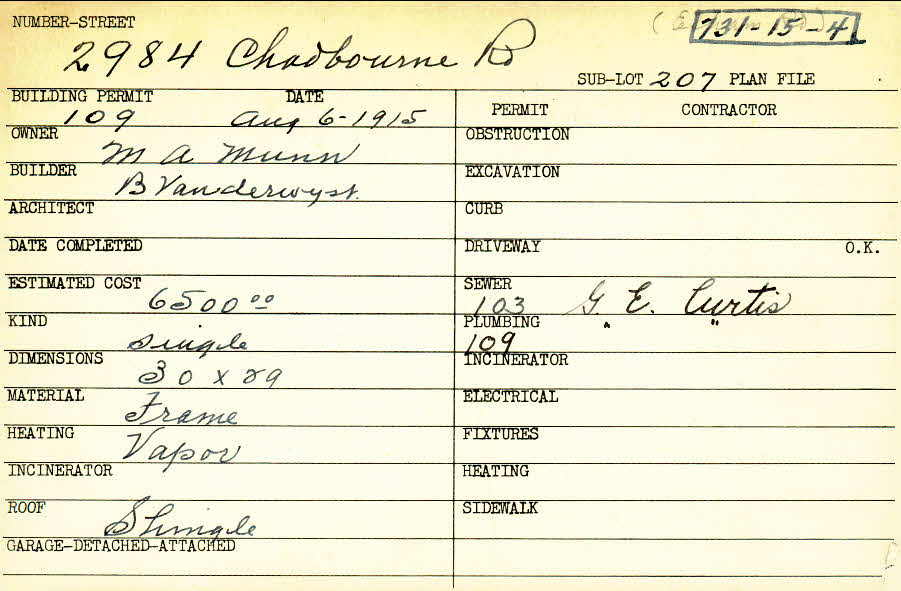 NUMBER-STREET
731-15-4
2984 Chadbourne Rd
SUB-LOT 207 PLAN FILE
BUILDING PERMIT DATE
109 Aug 6-1915
PERMIT CONTRACTOR
OWNER
M A Munn
OBSTRUCTION
BUILDER
B Vanderwyst.
EXCAVATION
ARCHITECT
CURB
DATE COMPLETED
DRIVEWAY O.K.
ESTIMATED COST
6500 00
SEWER
103 G. E. Curtis
KIND
Single
PLUMBING " "
109
DIMENSIONS
30 x 29
INCINERATOR
MATERIAL
Frame
ELECTRICAL
HEATING
Vapor
FIXTURES
INCINERATOR
HEATING
ROOF
Shingle
SIDEWALK
GARAGE-DETACHED-ATTACHED